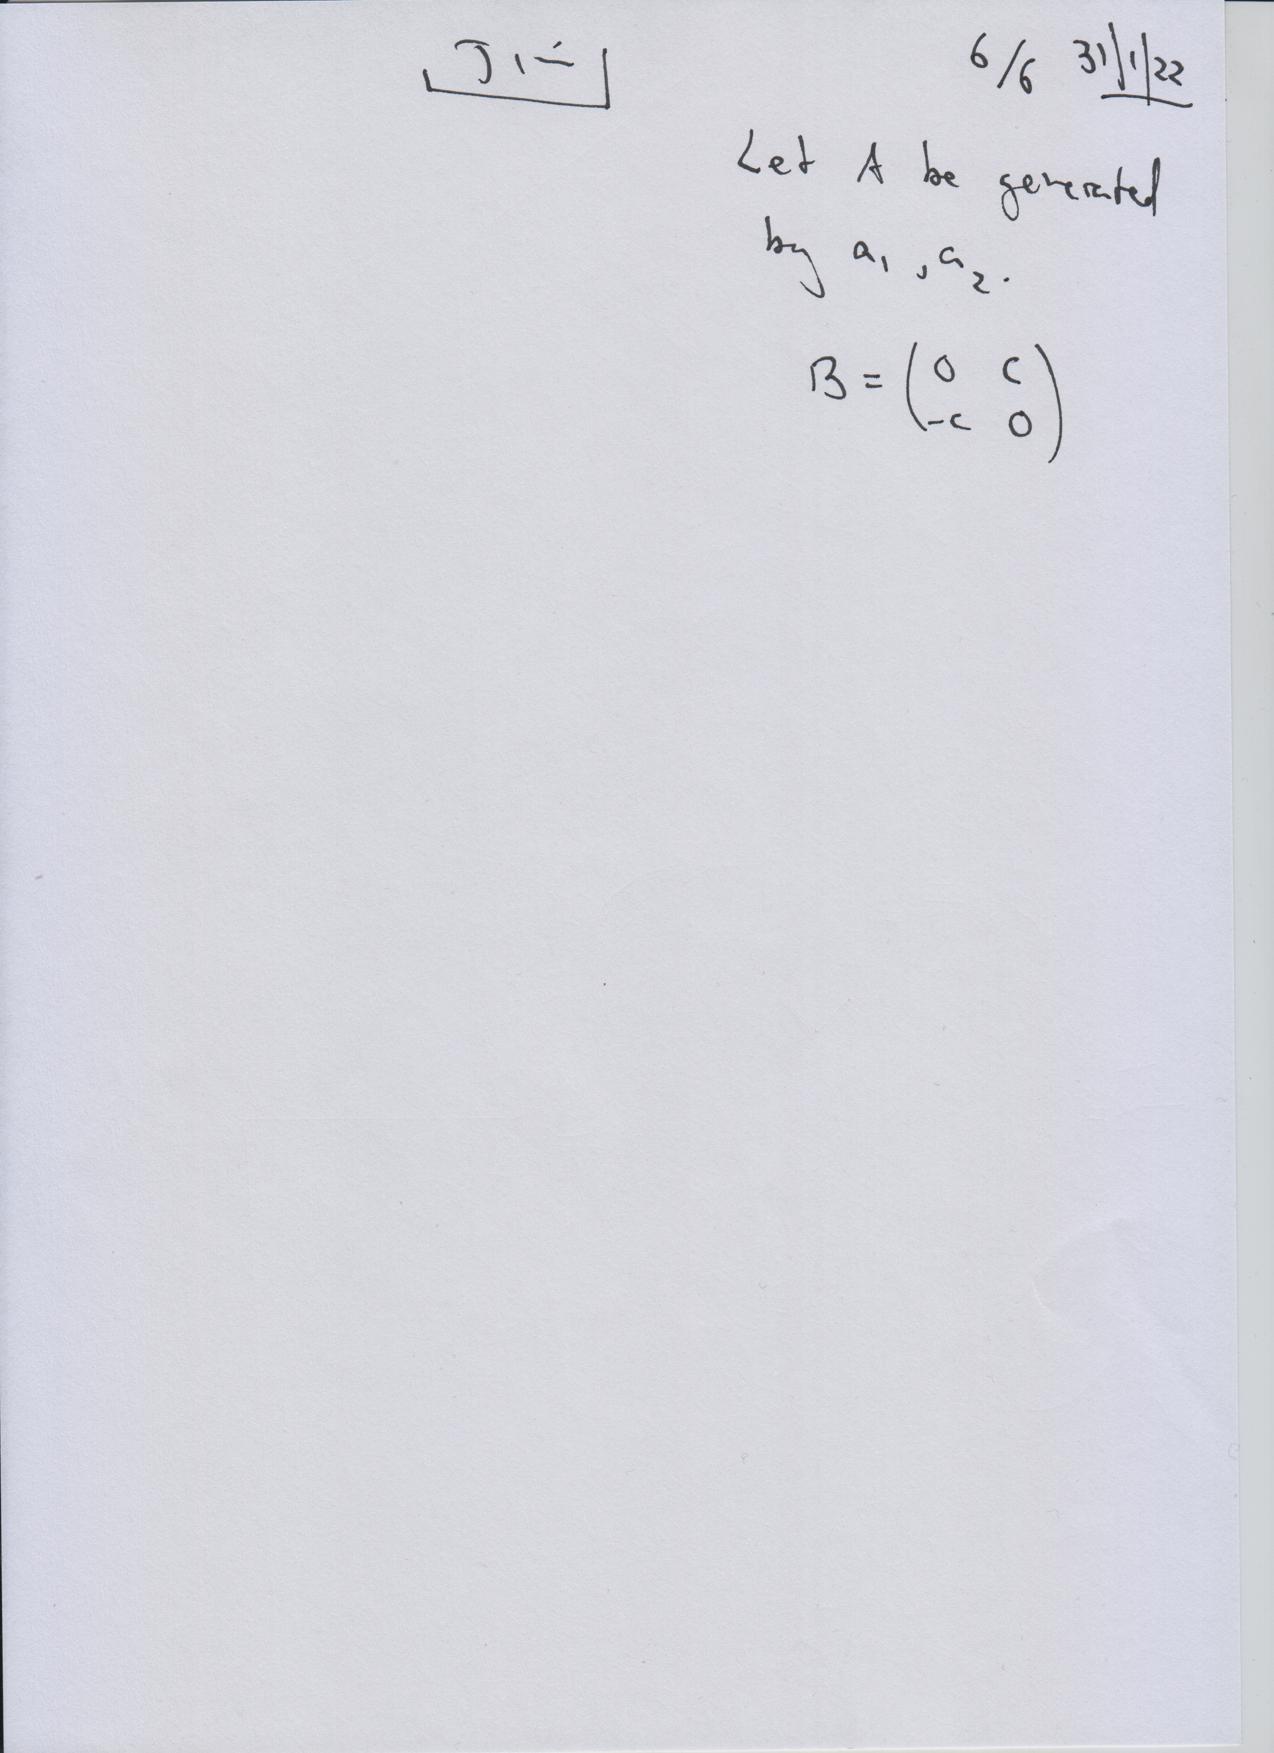 6/6 31/1/22
Let A be generated
by a₁, a₂.
B = ( 0 c
-c 0 )